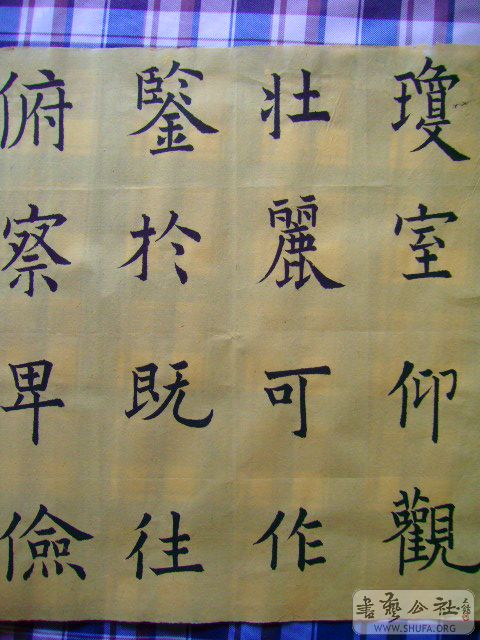 瓊室仰觀
壯麗可作
鑒於既往
俯察卑儉
書藝公社
WWW.SHUFA.ORG